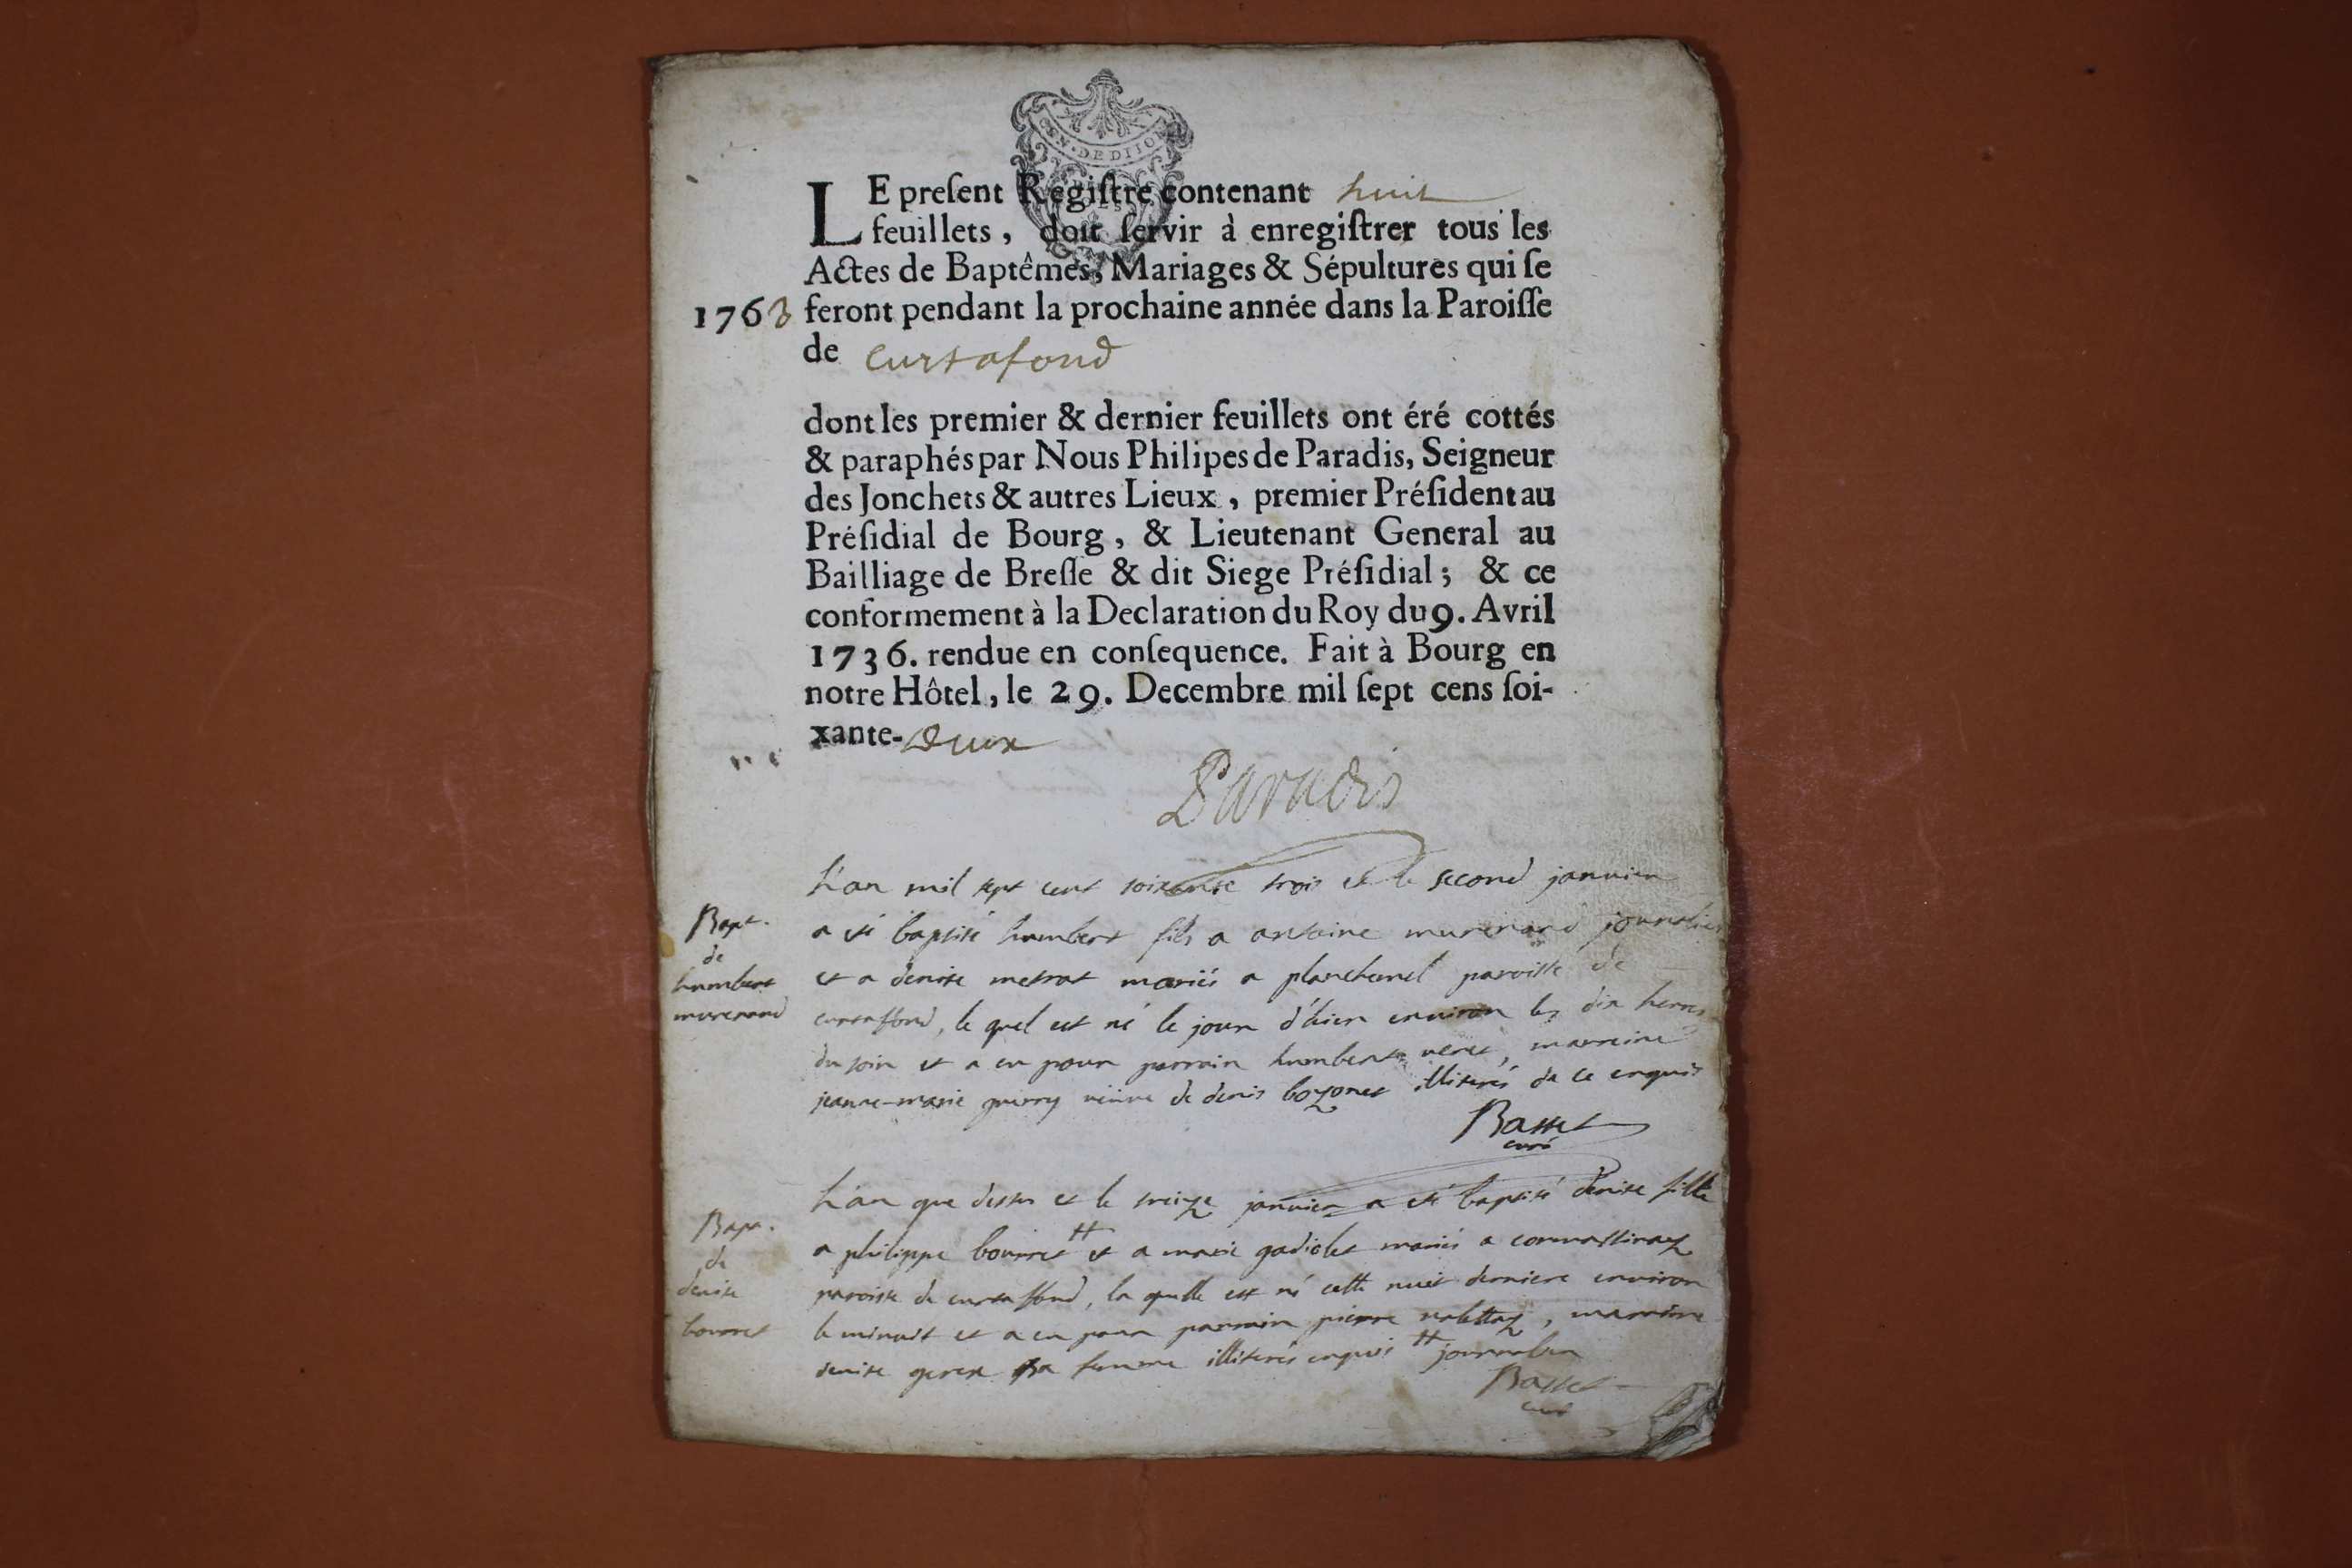 GEN. DE DIJON
LE preſent Regiſtre contenant huit
feuillets, doit ſervir à enregiſtrer tous les
Actes de Baptêmes, Mariages & Sépultures qui ſe
1763 feront pendant la prochaine année dans la Paroiſſe
de curtafond
dont les premier & dernier feuillets ont éré cottés
& paraphés par Nous Philipes de Paradis, Seigneur
des Jonchets & autres Lieux, premier Préſident au
Préſidial de Bourg, & Lieutenant General au
Bailliage de Breſſe & dit Siege Préſidial; & ce
conformement à la Declaration du Roy du 9. Avril
1736. rendue en conſequence. Fait à Bourg en
notre Hôtel, le 29. Decembre mil ſept cens ſoi-
xante-deux
Paradis
Bapt.
de
humbert
murenand
L'an mil sept cent soixante trois et le second janvier
a été baptisé humbert fils a antoine murenand journalier
et a denise metrat mariés a planchemel paroisse de
curtaffond, le quel est né le jour d'hier environ les dix heures
du soir et a eu pour parrain humbert veret, marreine
jeanne-marie guerry veuve de denis bozonet illiterés de ce enquis
Basset
curé
Bapt.
de
denise
bouvret
L'an que dessus et le treize janvier a été baptisé denise fille
a philippe bouvret # et a marie gadiolet mariés a
paroisse de curtaffond, la quelle est né cette nuit derniere environ
le minuit et a eu pour parrain pierre, marreine
denise sa femme illiterés enquis # journalier
Basset
curé